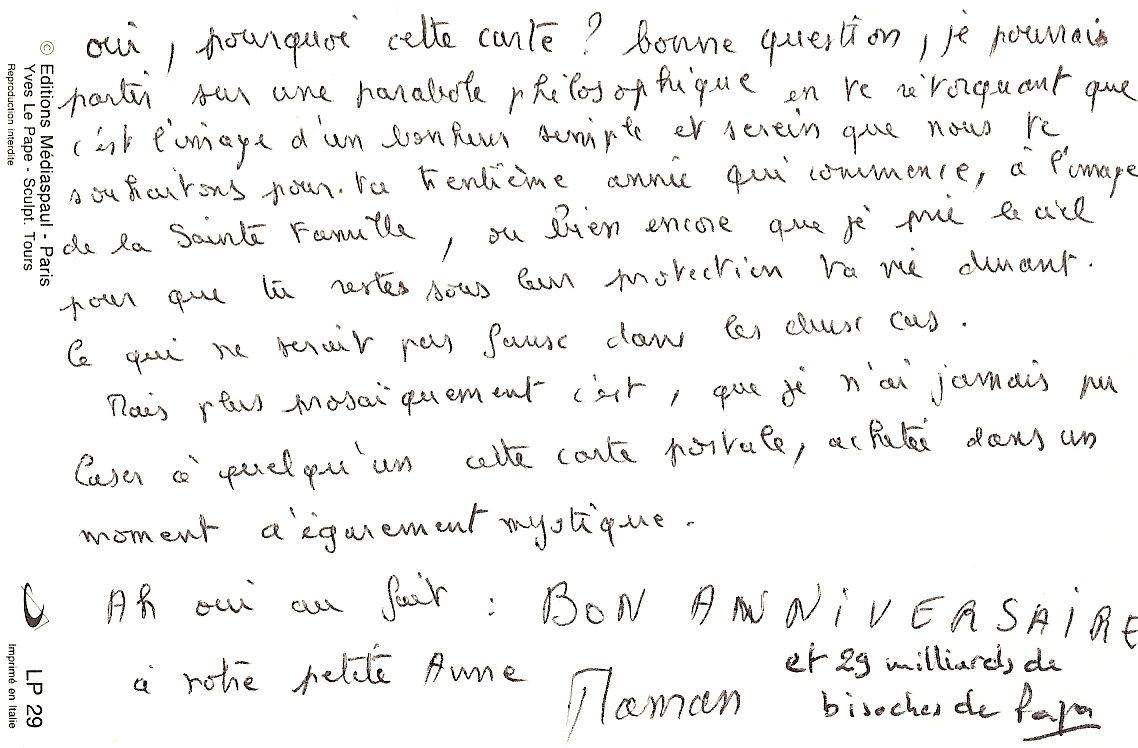 oui, pourquoi cette carte ? bonne question, je pourrais
partir sur une parabole philosophique en te rétorquant que
c'est l'image d'un bonheur simple et serein que nous te
souhaitons pour ta trentième année qui commence, à l'image
de la Sainte Famille, ou bien encore que je prie le ciel
pour que tu restes sous leur protection ta vie durant.
Ce qui ne serait pas faux dans les deux cas.
Mais plus prosaïquement c'est, que je n'ai jamais pu
caser à quelqu'un cette carte postale, achetée dans un
moment d'égarement mystique.
Ah oui au fait : BON ANNIVERSAIRE
à notre petite Anne
et 29 milliards de
Maman
bisoches de Papa
© Editions Médiaspaul - Paris
Yves Le Pape - Sculpt. Tours
Reproduction interdite
LP 29
Imprimé en Italie